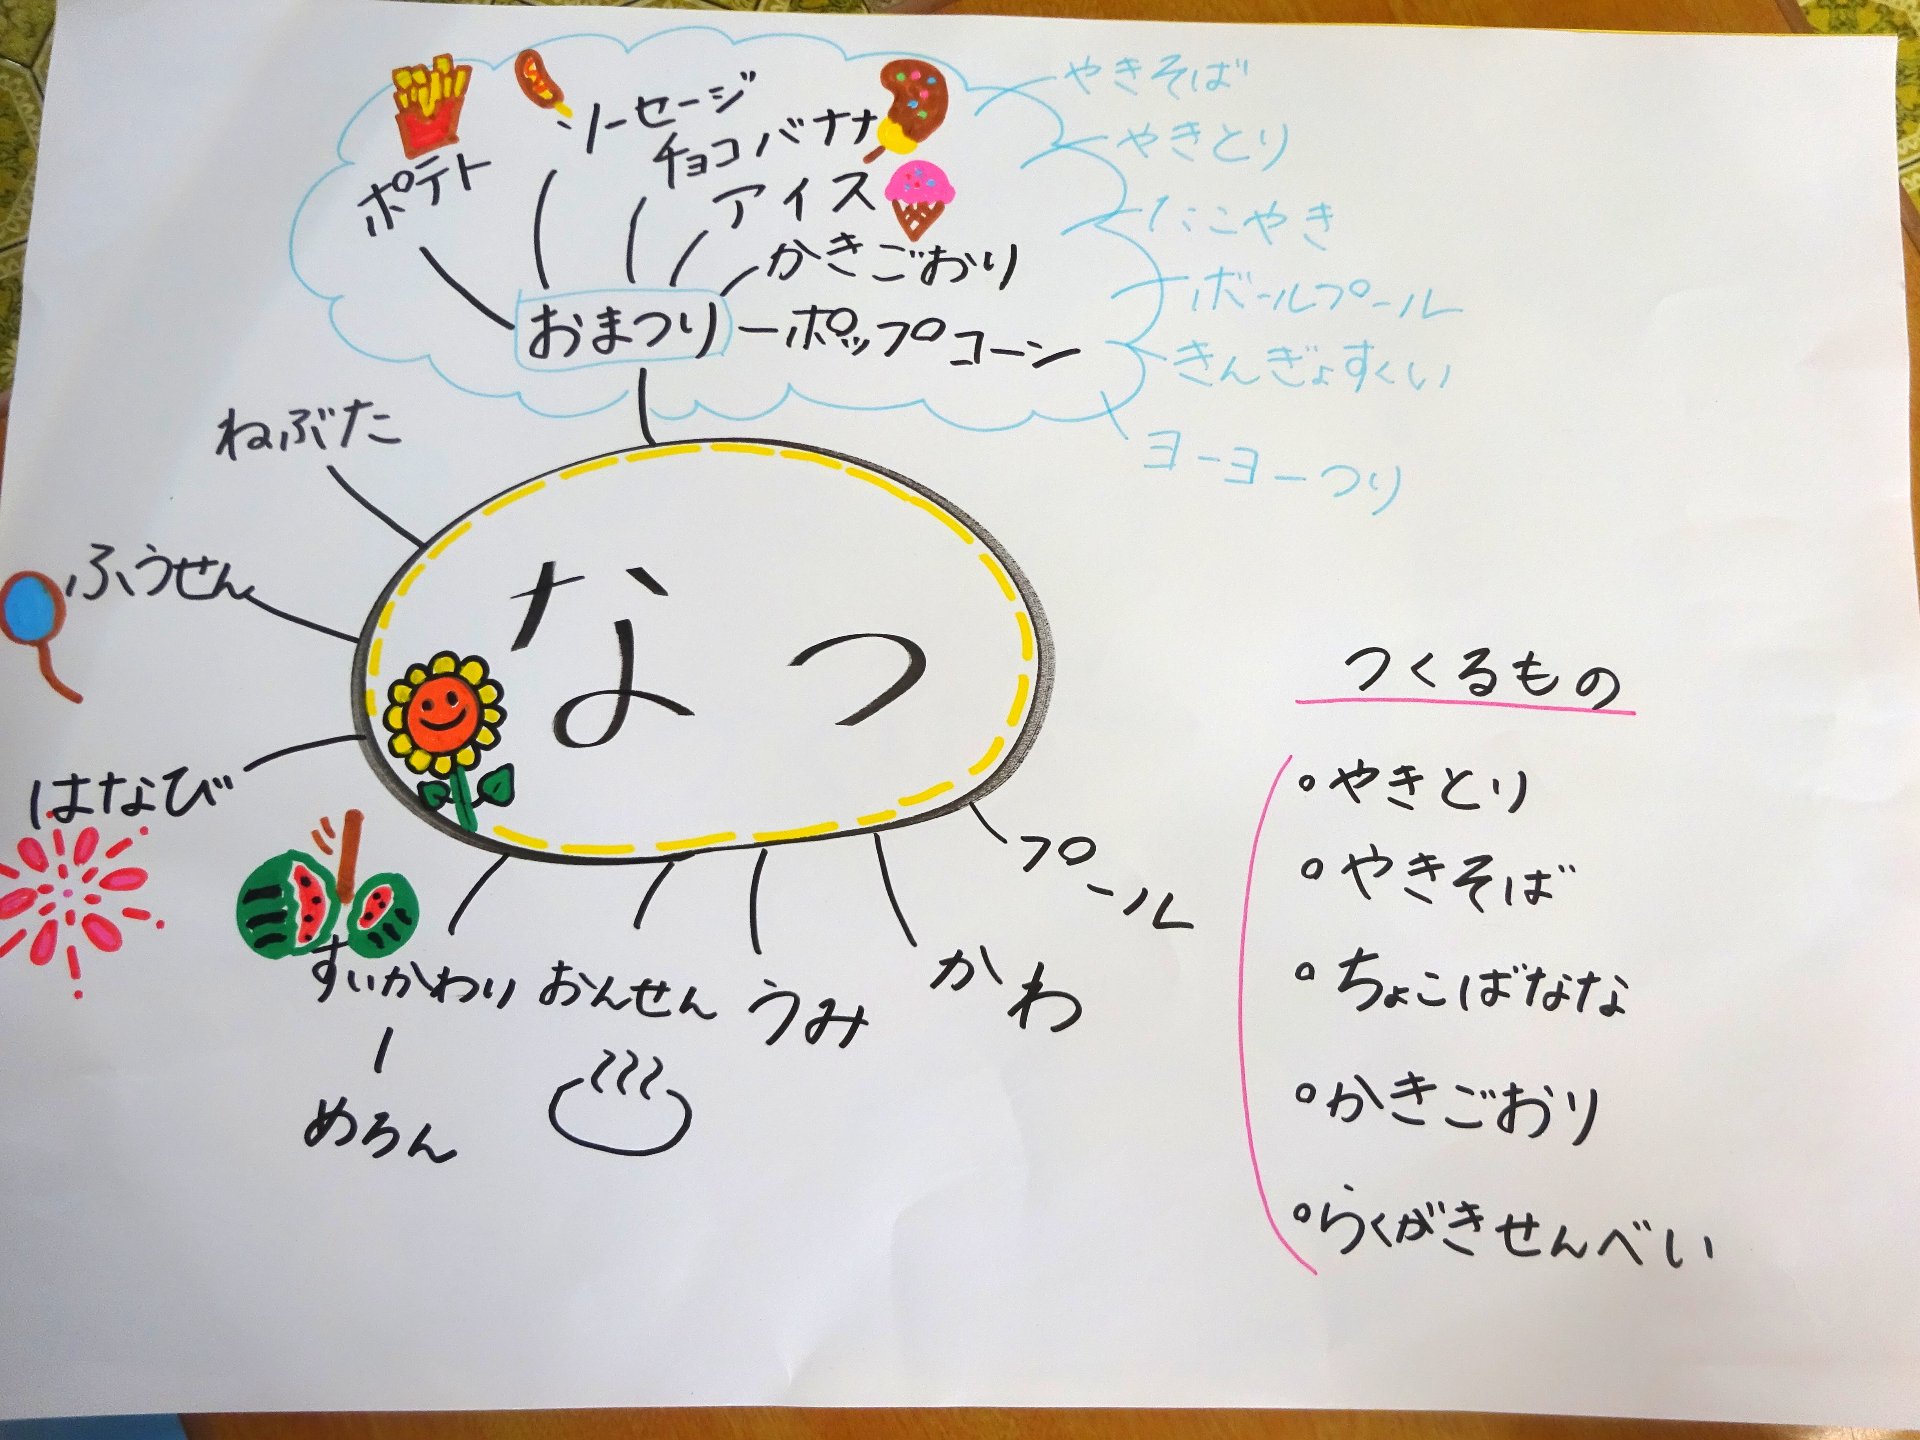 ポテト
ソーセージ
チョコバナナ
アイス
かきごおり
おまつり
ポップコーン
やきそば
やきとり
たこやき
ボールプール
きんぎょすくい
ヨーヨーつり
ねぶた
ふうせん
はなび
なつ
すいかわり
めろん
おんせん
うみ
かわ
プール
つくるもの
◦やきとり
◦やきそば
◦ちょこばなな
◦かきごおり
◦らくがきせんべい